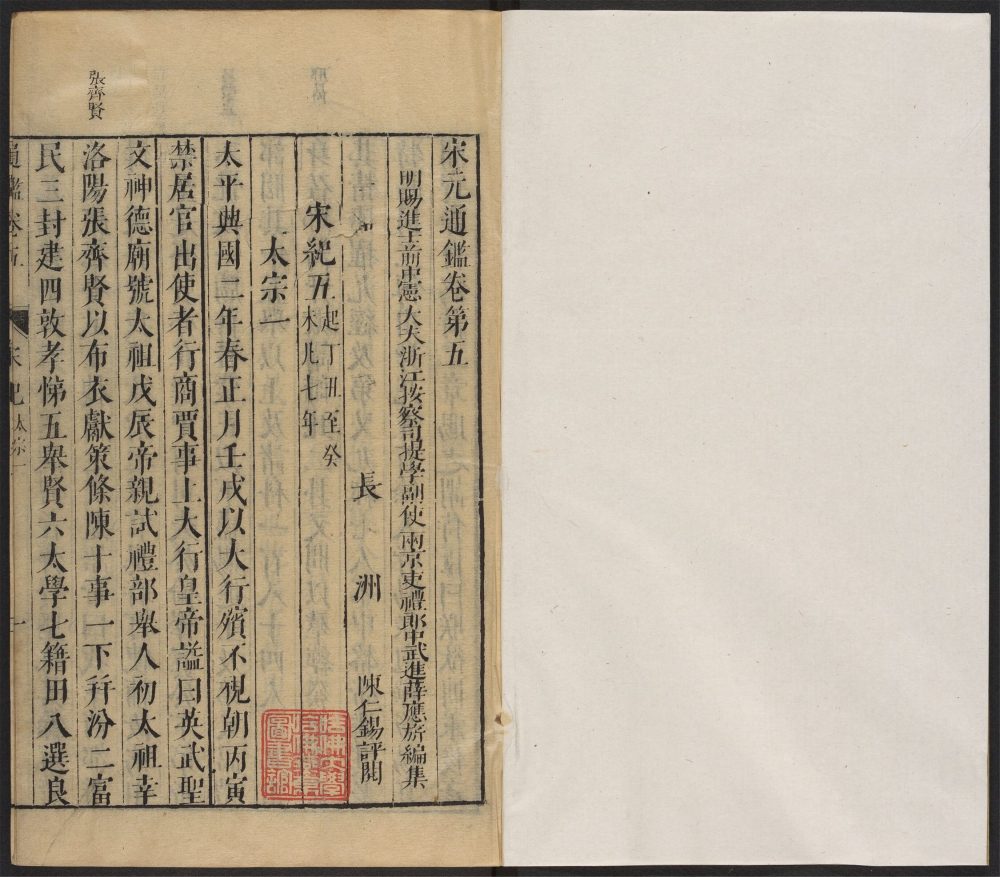 宋元通鑑卷第五
明賜進士前中憲大夫浙江按察司提學副使兩京吏禮郎中武進薛應旂編集
長洲陳仁錫評閱
宋紀五起丁丑至癸未凡七年
太宗一
太平興國二年春正月壬戌以大行殯不視朝丙寅
禁居官出使者行商賈事上大行皇帝謚曰英武聖
文神德廟號太祖戊辰帝親試禮部舉人初太祖幸
洛陽張齊賢以布衣獻策條陳十事一下幷汾二富
民三封建四敦孝悌五舉賢六太學七籍田八選良
張齊賢
通鑑卷五 宋紀太宗一 一
圖書館